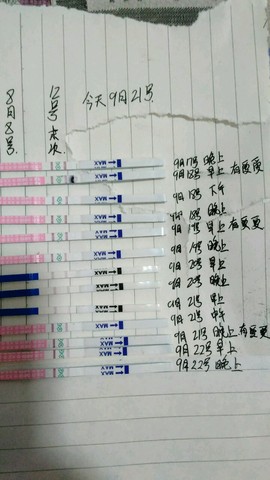 8月8号
12号末次
今天9月21号
9月17号 晚上
9月18号 早上 有
9月18号 下午
9月18号 晚上
9月19号 早上有
9月19号 晚上
9月20号 早上
9月20号 晚上
9月21号 早上
9月21号 中午
9月21号 晚上有
9月22号 早上
9月22号 晚上
MAX
MAX
MAX
MAX
MAX
MAX
MAX
MAX
MAX
MAX
MAX
MAX
MAX